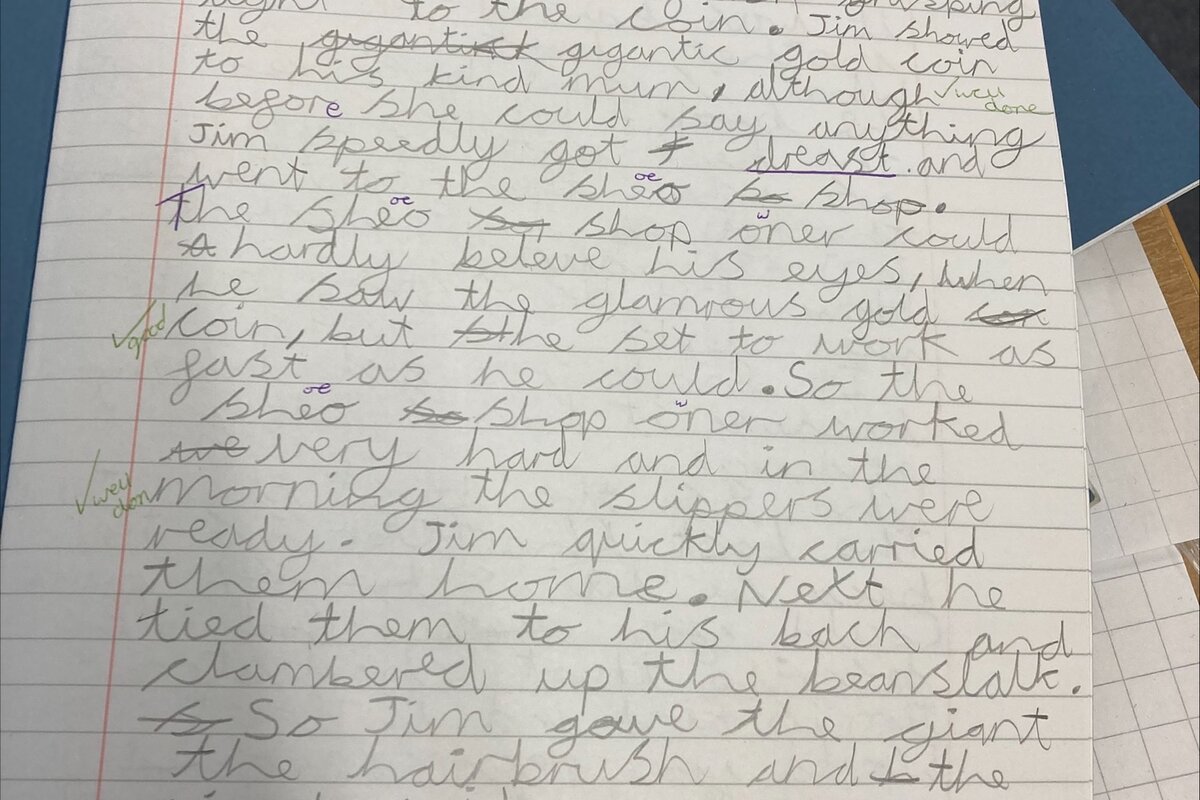 to the coin. Jim showed
the gigantick gigantic gold coin
to his kind mum, although ✓well done
before she could say anything
Jim speedly got dreast and
went to the sheo oe so shop.
The sheo oe sop shop oner w could
hardly beleve his eyes, when
he saw the glamrous gold
✓good coin, but the set to work as
fast as he could. So the
sheo oe so shop oner w worked
very hard and in the
✓well done morning the slippers were
ready. Jim quickly carried
them home. Next he
tied them to his bach and
clambered up the beanstalk.
So Jim gave the giant
the hairbrush and the